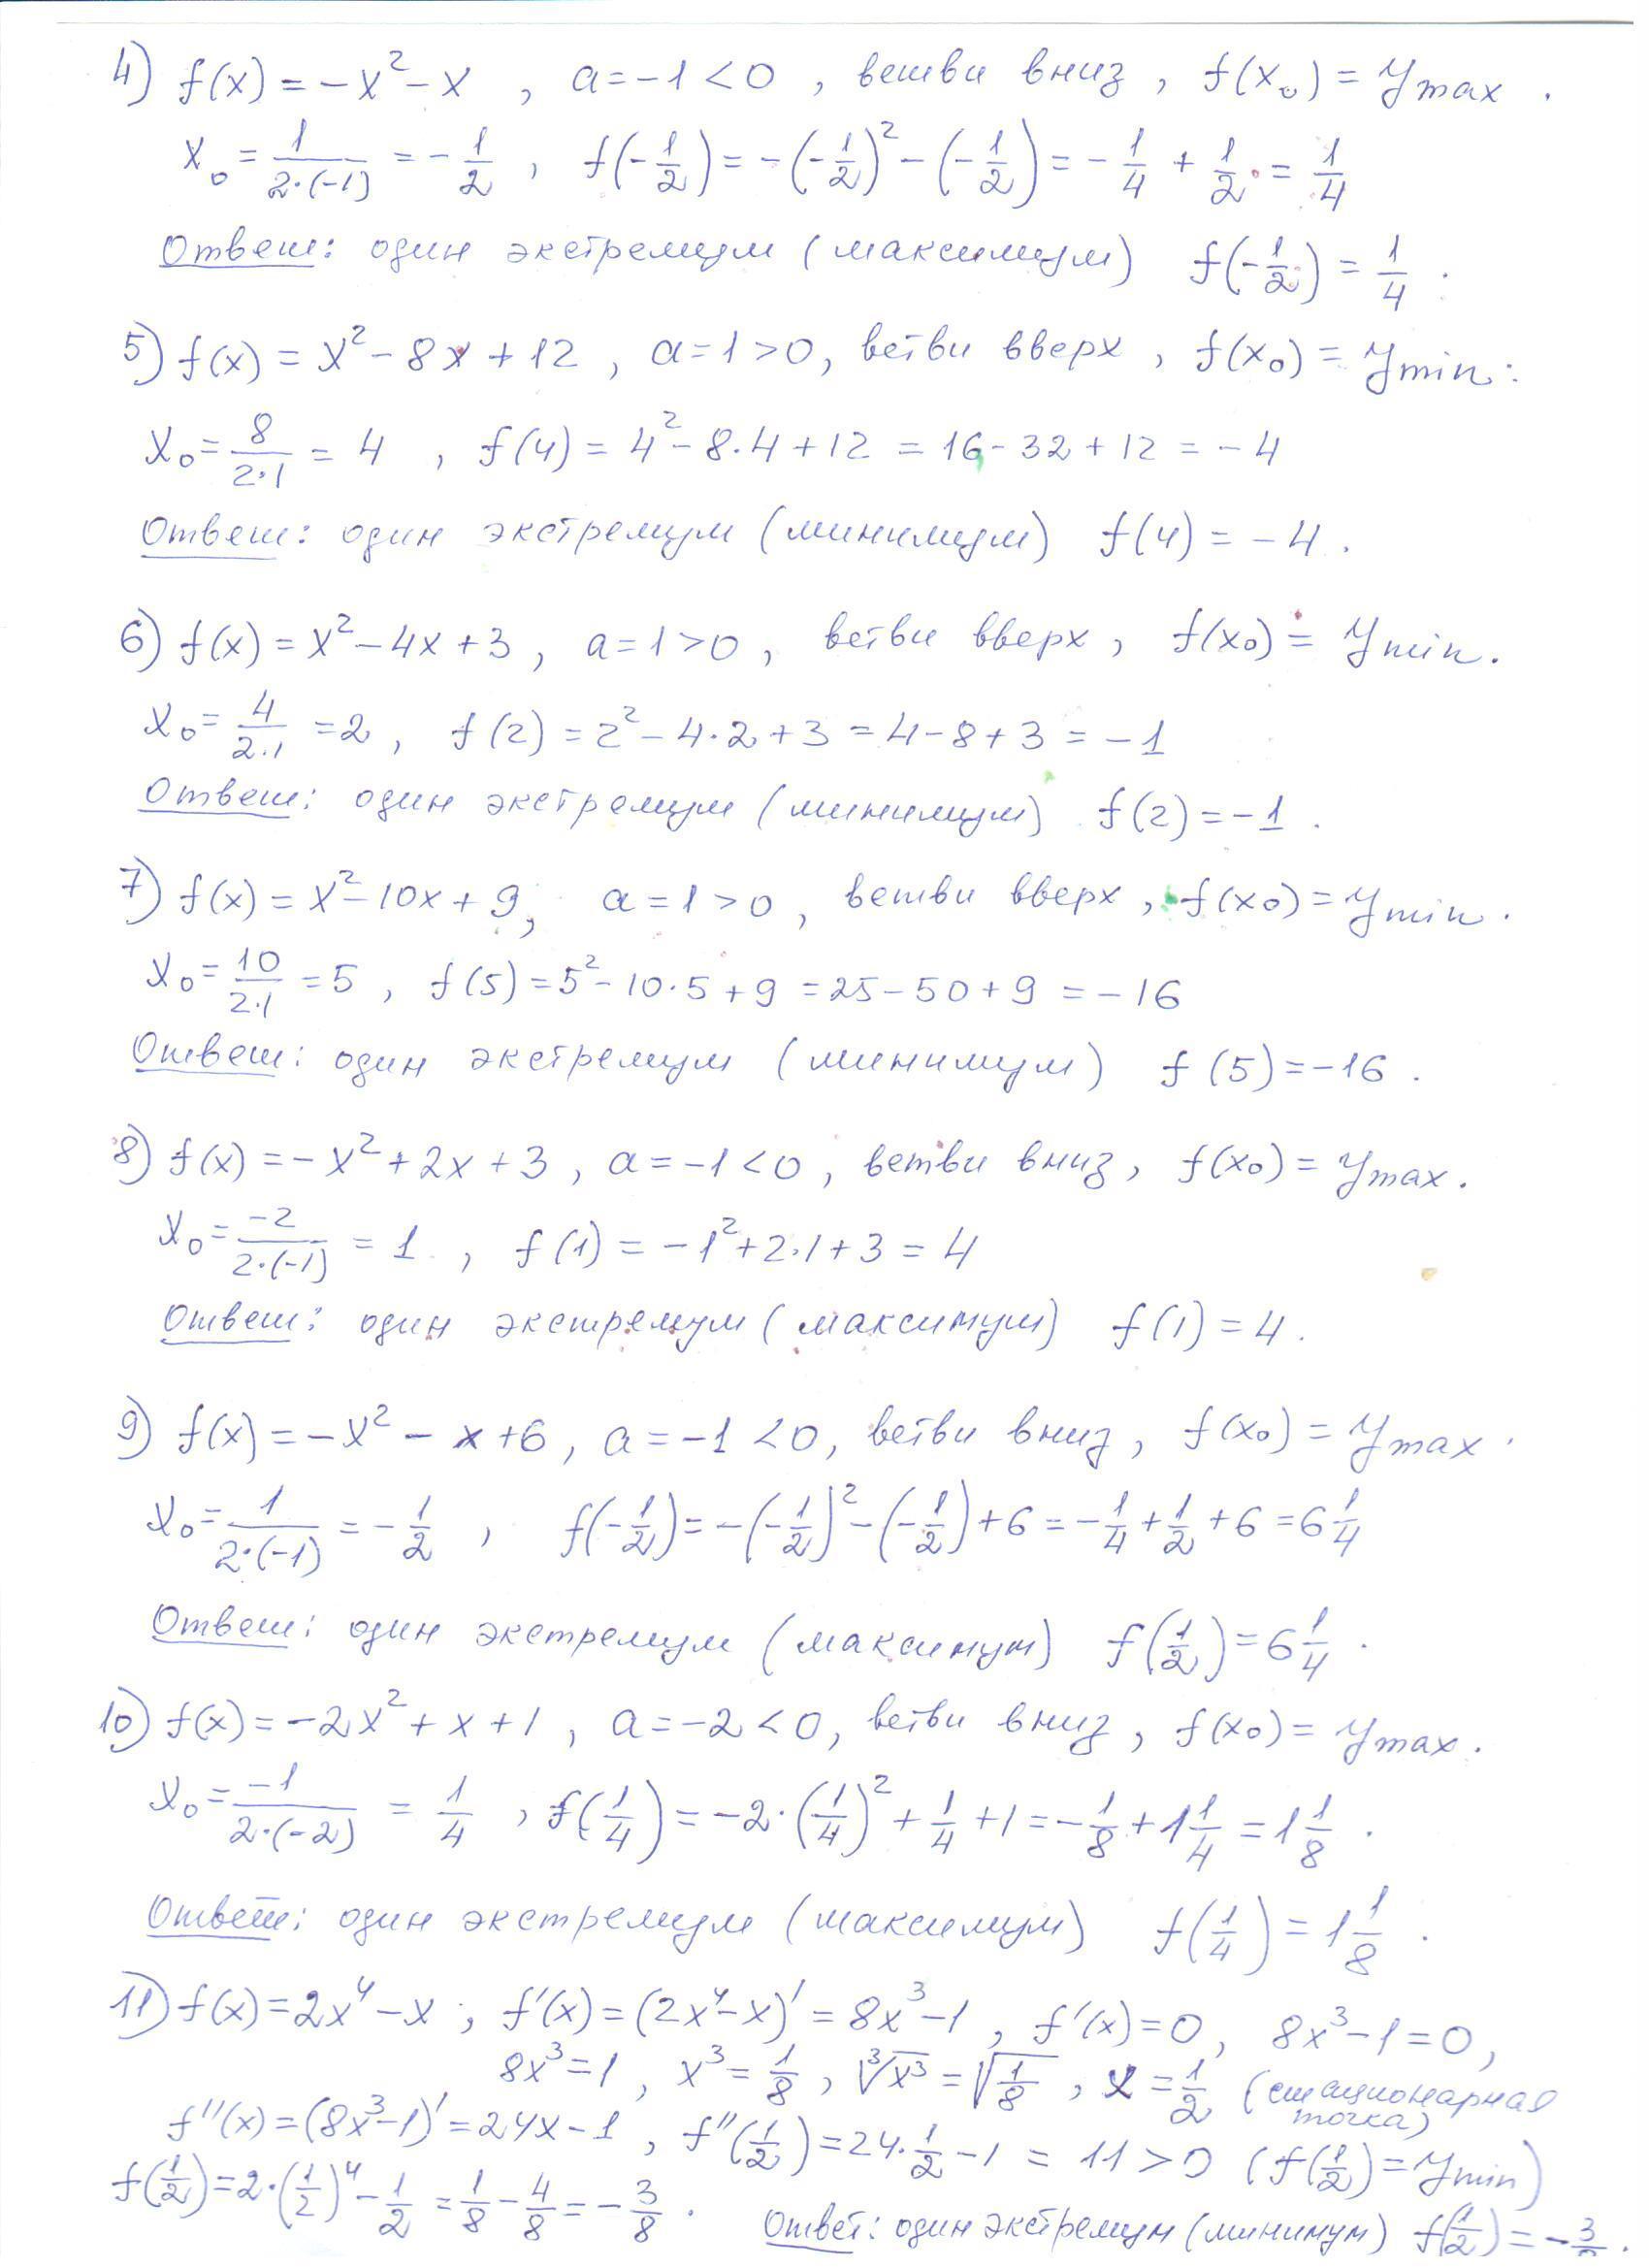 4) f(x) = -x² - x , a = -1 < 0 , ветви вниз , f(x₀) = y max .
x₀ = 1/(2·(-1)) = -1/2 , f(-1/2) = -(-1/2)² - (-1/2) = -1/4 + 1/2 = 1/4
Ответ: один экстремум (максимум) f(-1/2) = 1/4 .
5) f(x) = x² - 8x + 12 , a = 1 > 0, ветви вверх , f(x₀) = y min .
x₀ = 8/(2·1) = 4 , f(4) = 4² - 8·4 + 12 = 16 - 32 + 12 = -4
Ответ: один экстремум (минимум) f(4) = -4 .
6) f(x) = x² - 4x + 3 , a = 1 > 0 , ветви вверх , f(x₀) = y min .
x₀ = 4/(2·1) = 2 , f(2) = 2² - 4·2 + 3 = 4 - 8 + 3 = -1
Ответ: один экстремум (минимум) f(2) = -1 .
7) f(x) = x² - 10x + 9 , a = 1 > 0 , ветви вверх , f(x₀) = y min .
x₀ = 10/(2·1) = 5 , f(5) = 5² - 10·5 + 9 = 25 - 50 + 9 = -16
Ответ: один экстремум (минимум) f(5) = -16 .
8) f(x) = -x² + 2x + 3 , a = -1 < 0 , ветви вниз , f(x₀) = y max .
x₀ = -2/(2·(-1)) = 1 , f(1) = -1² + 2·1 + 3 = 4
Ответ: один экстремум (максимум) f(1) = 4 .
9) f(x) = -x² - x + 6 , a = -1 < 0, ветви вниз , f(x₀) = y max .
x₀ = 1/(2·(-1)) = -1/2 , f(-1/2) = -(-1/2)² - (-1/2) + 6 = -1/4 + 1/2 + 6 = 6 1/4
Ответ: один экстремум (максимум) f(1/2) = 6 1/4 .
10) f(x) = -2x² + x + 1 , a = -2 < 0, ветви вниз , f(x₀) = y max .
x₀ = -1/(2·(-2)) = 1/4 , f(1/4) = -2·(1/4)² + 1/4 + 1 = -1/8 + 1 1/4 = 1 1/8 .
Ответ: один экстремум (максимум) f(1/4) = 1 1/8 .
11) f(x) = 2x⁴ - x ; f'(x) = (2x⁴ - x)' = 8x³ - 1 , f'(x) = 0 , 8x³ - 1 = 0 ,
8x³ = 1 , x³ = 1/8 , ³√x³ = √1/8 , x = 1/2 (стационарная
точка)
f''(x) = (8x³ - 1)' = 24x - 1 , f''(1/2) = 24·1/2 - 1 = 11 > 0 (f(1/2) = y min)
f(1/2) = 2·(1/2)⁴ - 1/2 = 1/8 - 4/8 = -3/8 .
Ответ: один экстремум (минимум) f(1/2) = -3/8 .